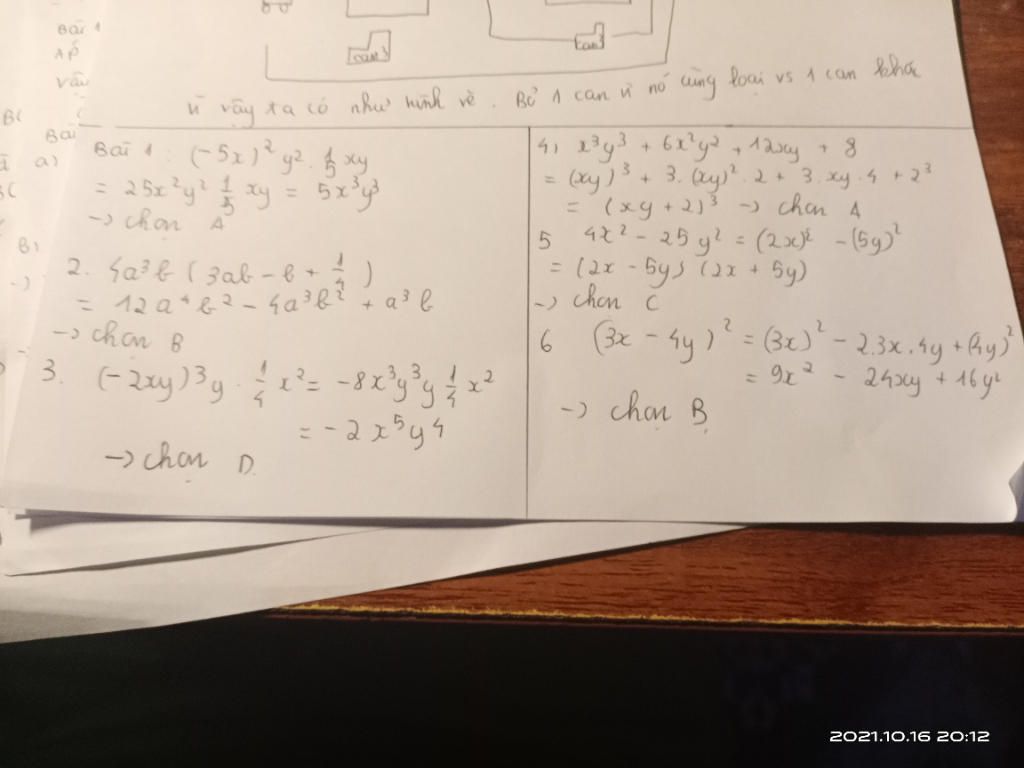 Bài 1
Ap
vậy
can
can
vì vậy ta có như hình vẽ. Bỏ 1 can vì nó cùng loại vs 1 can khác
Bài
a)
Bài 1: (-5x)² y² . 1/5 xy
= 25x²y² 1/5 xy = 5x³y³
-> chọn A
2. 4a³b (3ab - b + 1/4)
= 12a⁴b² - 4a³b² + a³b
-> chọn B
3. (-2xy)³y . 1/4 x² = -8x³y³y 1/4 x²
= -2x⁵y⁴
-> chọn D.
4) x³y³ + 6x²y² + 12xy + 8
= (xy)³ + 3.(xy)².2 + 3.xy.4 + 2³
= (xy + 2)³ -> chọn A
5 4x² - 25y² = (2x)² - (5y)²
= (2x - 5y) (2x + 5y)
-> chọn C
6 (3x - 4y)² = (3x)² - 2.3x.4y + (4y)²
= 9x² - 24xy + 16y²
-> chọn B
2021.10.16 20:12